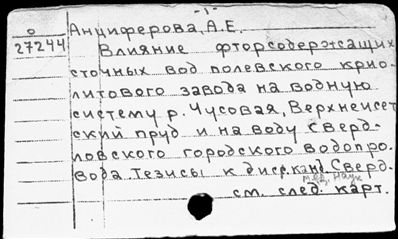 -1-
О Анциферова, А.Е.
27244 Влияние фторсодержащих
сточных вод полевского крио-
литового завода на водную
систему р. Чусовая, Верхнеисет
ский пруд и на воду Сверд-
ловского городского водопро.
вода. Тезисы к дисс. канд. Сверд.
мед. наук
см. след. карт.